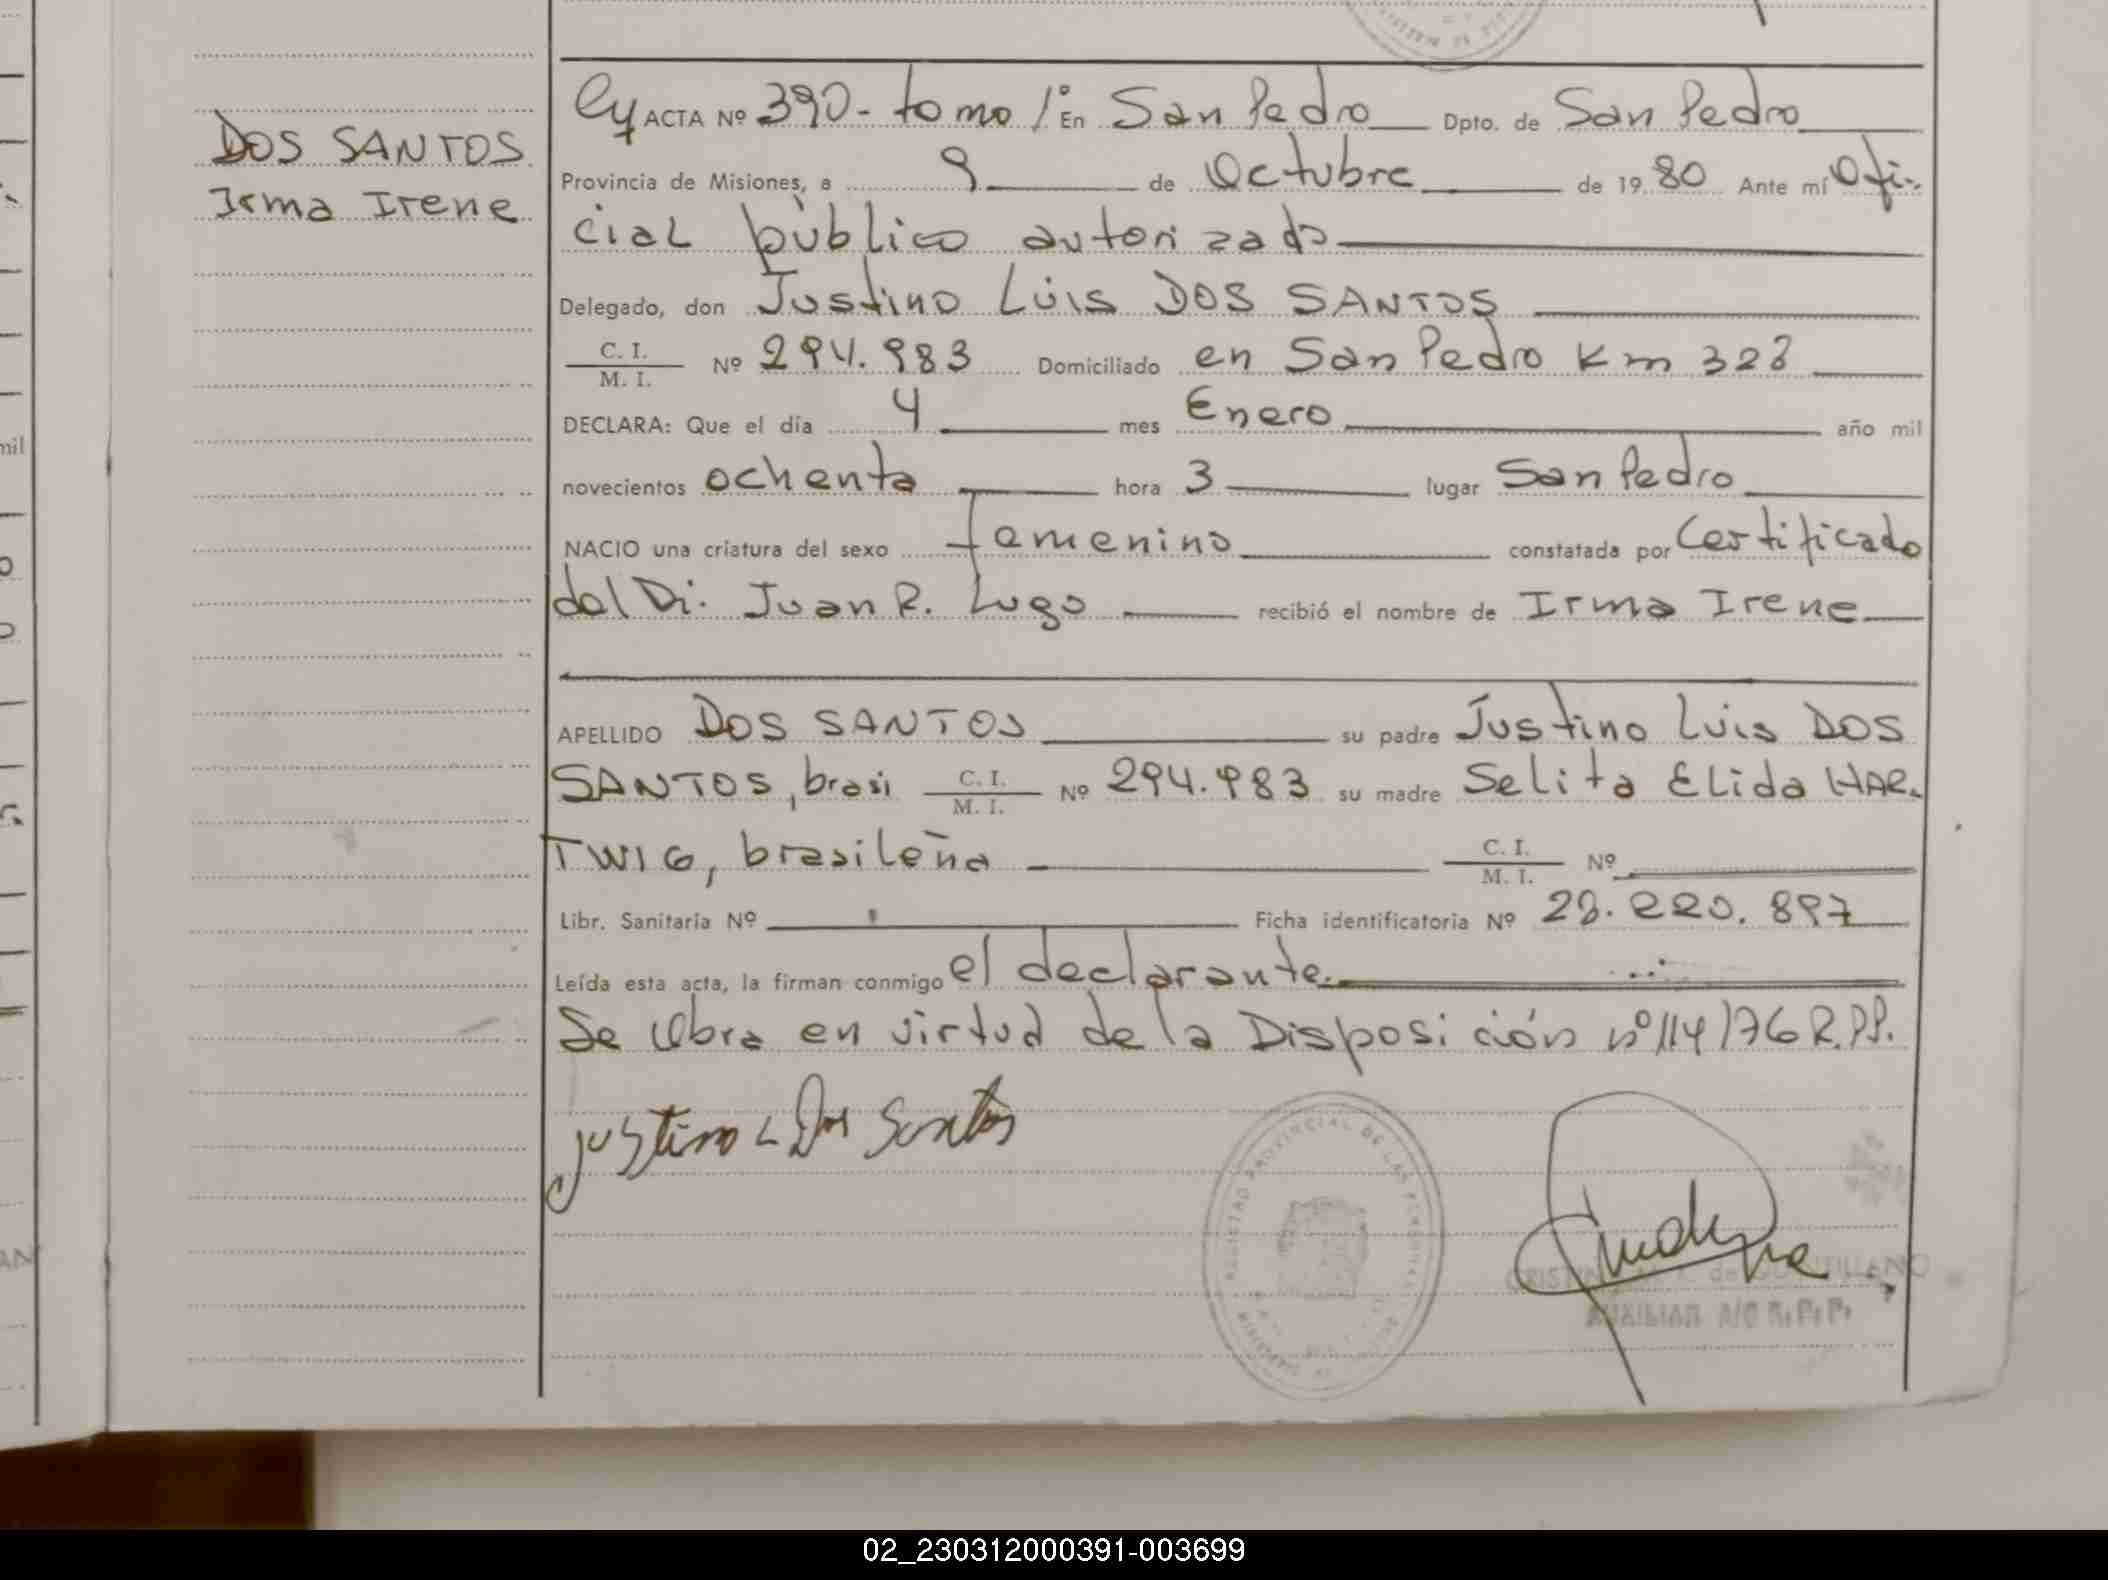 DOS SANTOS
Irma Irene
ACTA Nº 390- tomo 1º En San Pedro Dpto. de San Pedro
Provincia de Misiones, a 9 de Octubre de 1980 Ante mí Ofi-
cial público autorizado
Delegado, don Justino Luis DOS SANTOS
C. I.
M. I. Nº 294.983 Domiciliado en San Pedro Km 328
DECLARA: Que el día 4 mes Enero año mil
novecientos ochenta hora 3 lugar San Pedro
NACIO una criatura del sexo femenino constatada por Certificado
del Dr. Juan R. Lugo recibió el nombre de Irma Irene
APELLIDO DOS SANTOS su padre Justino Luis DOS
SANTOS, brasi C. I.
M. I. Nº 294.983 su madre Selita Elida HAR-
TWIG, brasileña C. I.
M. I. Nº
Libr. Sanitaria Nº Ficha identificatoria Nº 28.220.897
Leída esta acta, la firman conmigo el declarante.
Se Obra en virtud de la Disposición nº 114/76 R.PP.
justino L Dos Santos
REGISTRO PROVINCIAL DE LAS PERSONAS
AUXILIAR A/C R.P.P.
02_230312000391-003699